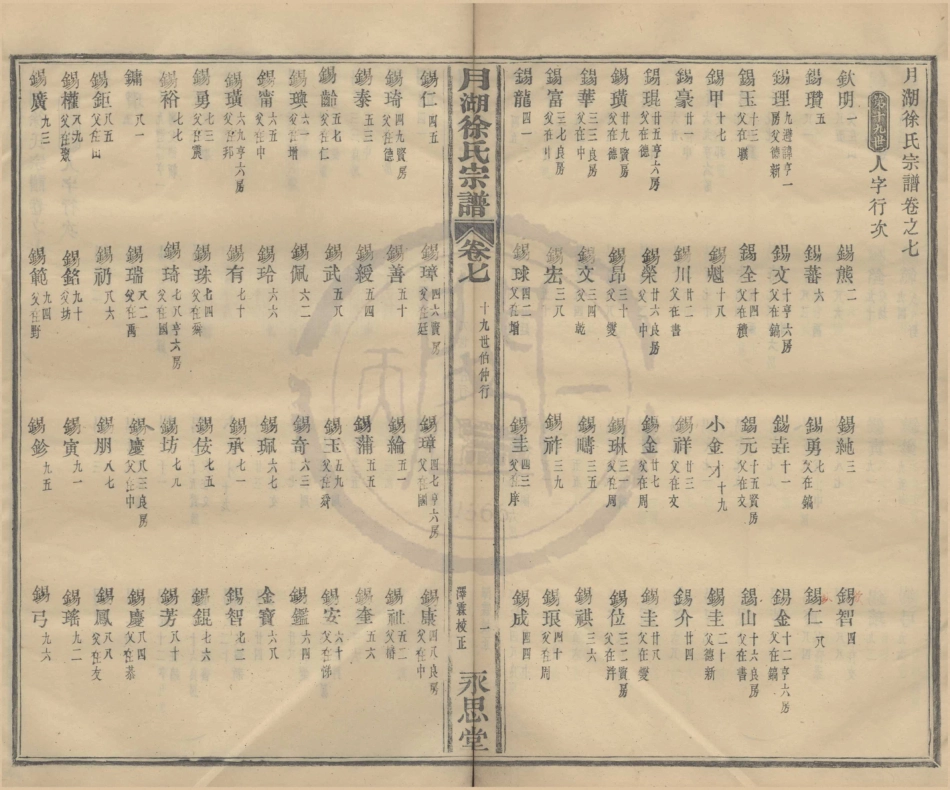 月湖徐氏宗譜卷之七
十九世 人字行次
欽明一 錫熊二 錫純三 錫智四
錫瓚五 錫蕃六 錫勇七父在鎬 錫仁八
錫理九 亨一房父德新 錫文十亨六房父在鎬 錫垚十一 錫金十二亨六房父在鎬
錫玉十三父在驥 錫全十四父在積 錫元十五賢房父在文 錫山十六良房父在書
錫甲十七 錫魁十八 小金才十九 錫圭二十父德新
錫豪廿一 錫川廿二父在書 錫祥廿三父在文 錫介廿四
錫琨廿五亨六房父在德 錫榮廿六良房父在中 錫金廿七父在周 錫圭廿八父在燮
錫璜廿九賢房父在德 錫昂三十父在燮 錫琳三一父在周 錫位三二賢房父在許
錫華三三父在中 錫文三四父在乾 錫疇三五 錫祺三六
錫富三七良房父在中 錫宏三八 錫祚三九 錫琅四十父在周
錫龍四一 錫球四二父在增 錫圭四三父在庠 錫成四四
月湖徐氏宗譜 卷七 十九世伯仲行 一 校正 永思堂
錫仁四五 錫璋四六賢房父在廷 錫璋四七亨六房父在國 錫康四八良房父在中
錫琦四九賢房父在德 錫善五十 錫綸五一 錫祉五二父在
錫泰五三 錫緩五四 錫蒲五五 錫奎五六
錫齡五七父在仁 錫武五八 錫玉五九父在舜 錫安六十父在保
錫瑛六一父在增 錫佩六二 錫奇六三 錫鑑六四
錫甯六五父在中 錫玲六六 錫珮六七 金寶六八
錫璜六九亨六房父在邦 錫有七十 錫承七一 錫智七二
錫勇七三父在農 錫珠七四父在舜 錫侒七五 錫錕七六
錫裕七七 錫琦七八亨六房父在國 錫坊七九 錫芳八十
錫鏞八一 錫瑞八二父在萬 錫慶八三良房父在中 錫慶八四父在恭
錫鉅八五父在田 錫礽八六 錫朋八七 錫鳳八八父在友
錫權八九父在墩 錫銘九十父坊 錫寅九一 錫瑤九二
錫廣九三 錫範九四父在野 錫鉁九五 錫弓九六